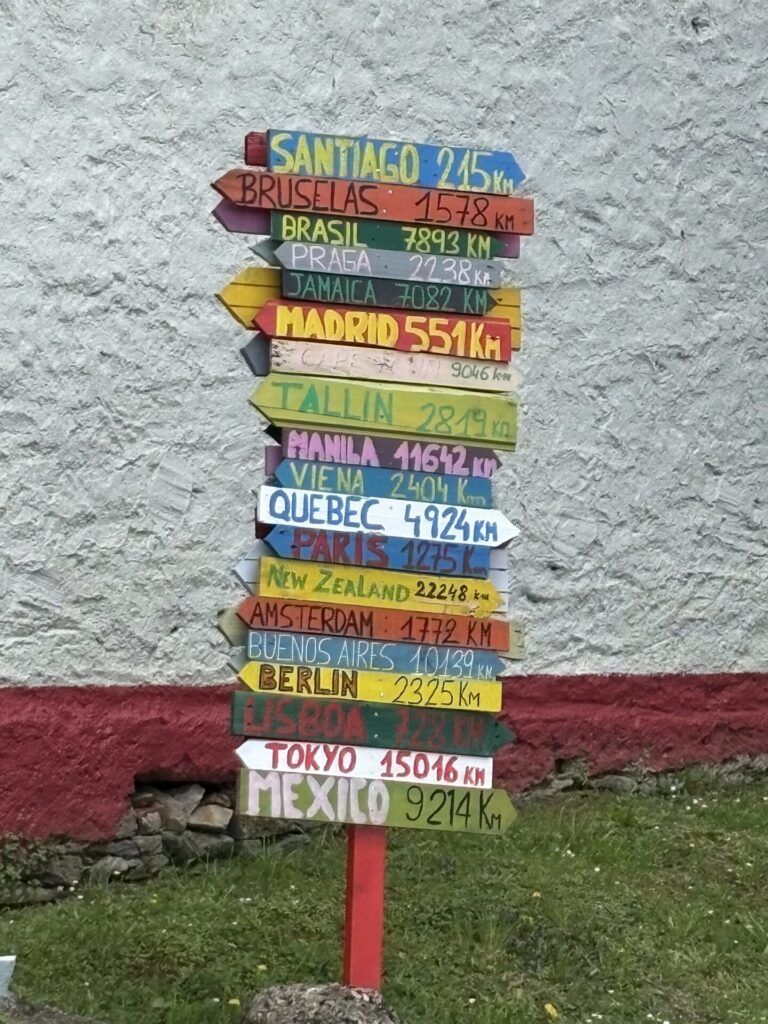 SANTIAGO 215 KM
BRUSELAS 1578 KM
BRASIL 7893 KM
PRAGA 2238 KM
JAMAICA 7082 KM
MADRID 551 KM
9046 KM
TALLIN 2819 KM
MANILA 11642 KM
VIENA 2404 Km
QUEBEC 4924 KM
PARIS 1275 K
NEW ZEALAND 22248 KM
AMSTERDAM 1772 KM
BUENOS AIRES 10139 KM
BERLIN 2325 KM
LISBOA 728 KM
TOKYO 15016 KM
MEXICO 9214 KM